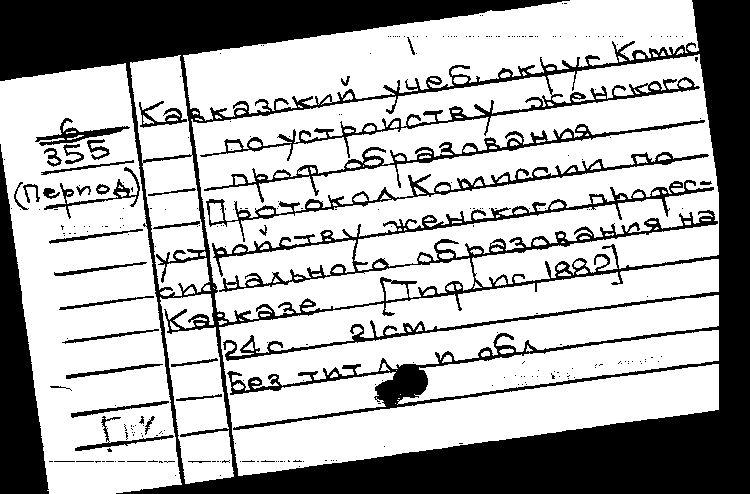 Кавказский учеб. округ Комис
по устройству женского
проф. образования.
6
355
(Период)
Протокол Комиссии по
устройству женского профес=
сионального образования на
Кавказе. [Тифлис, 1882]
24с. 21см.
Без тит. л. и обл.